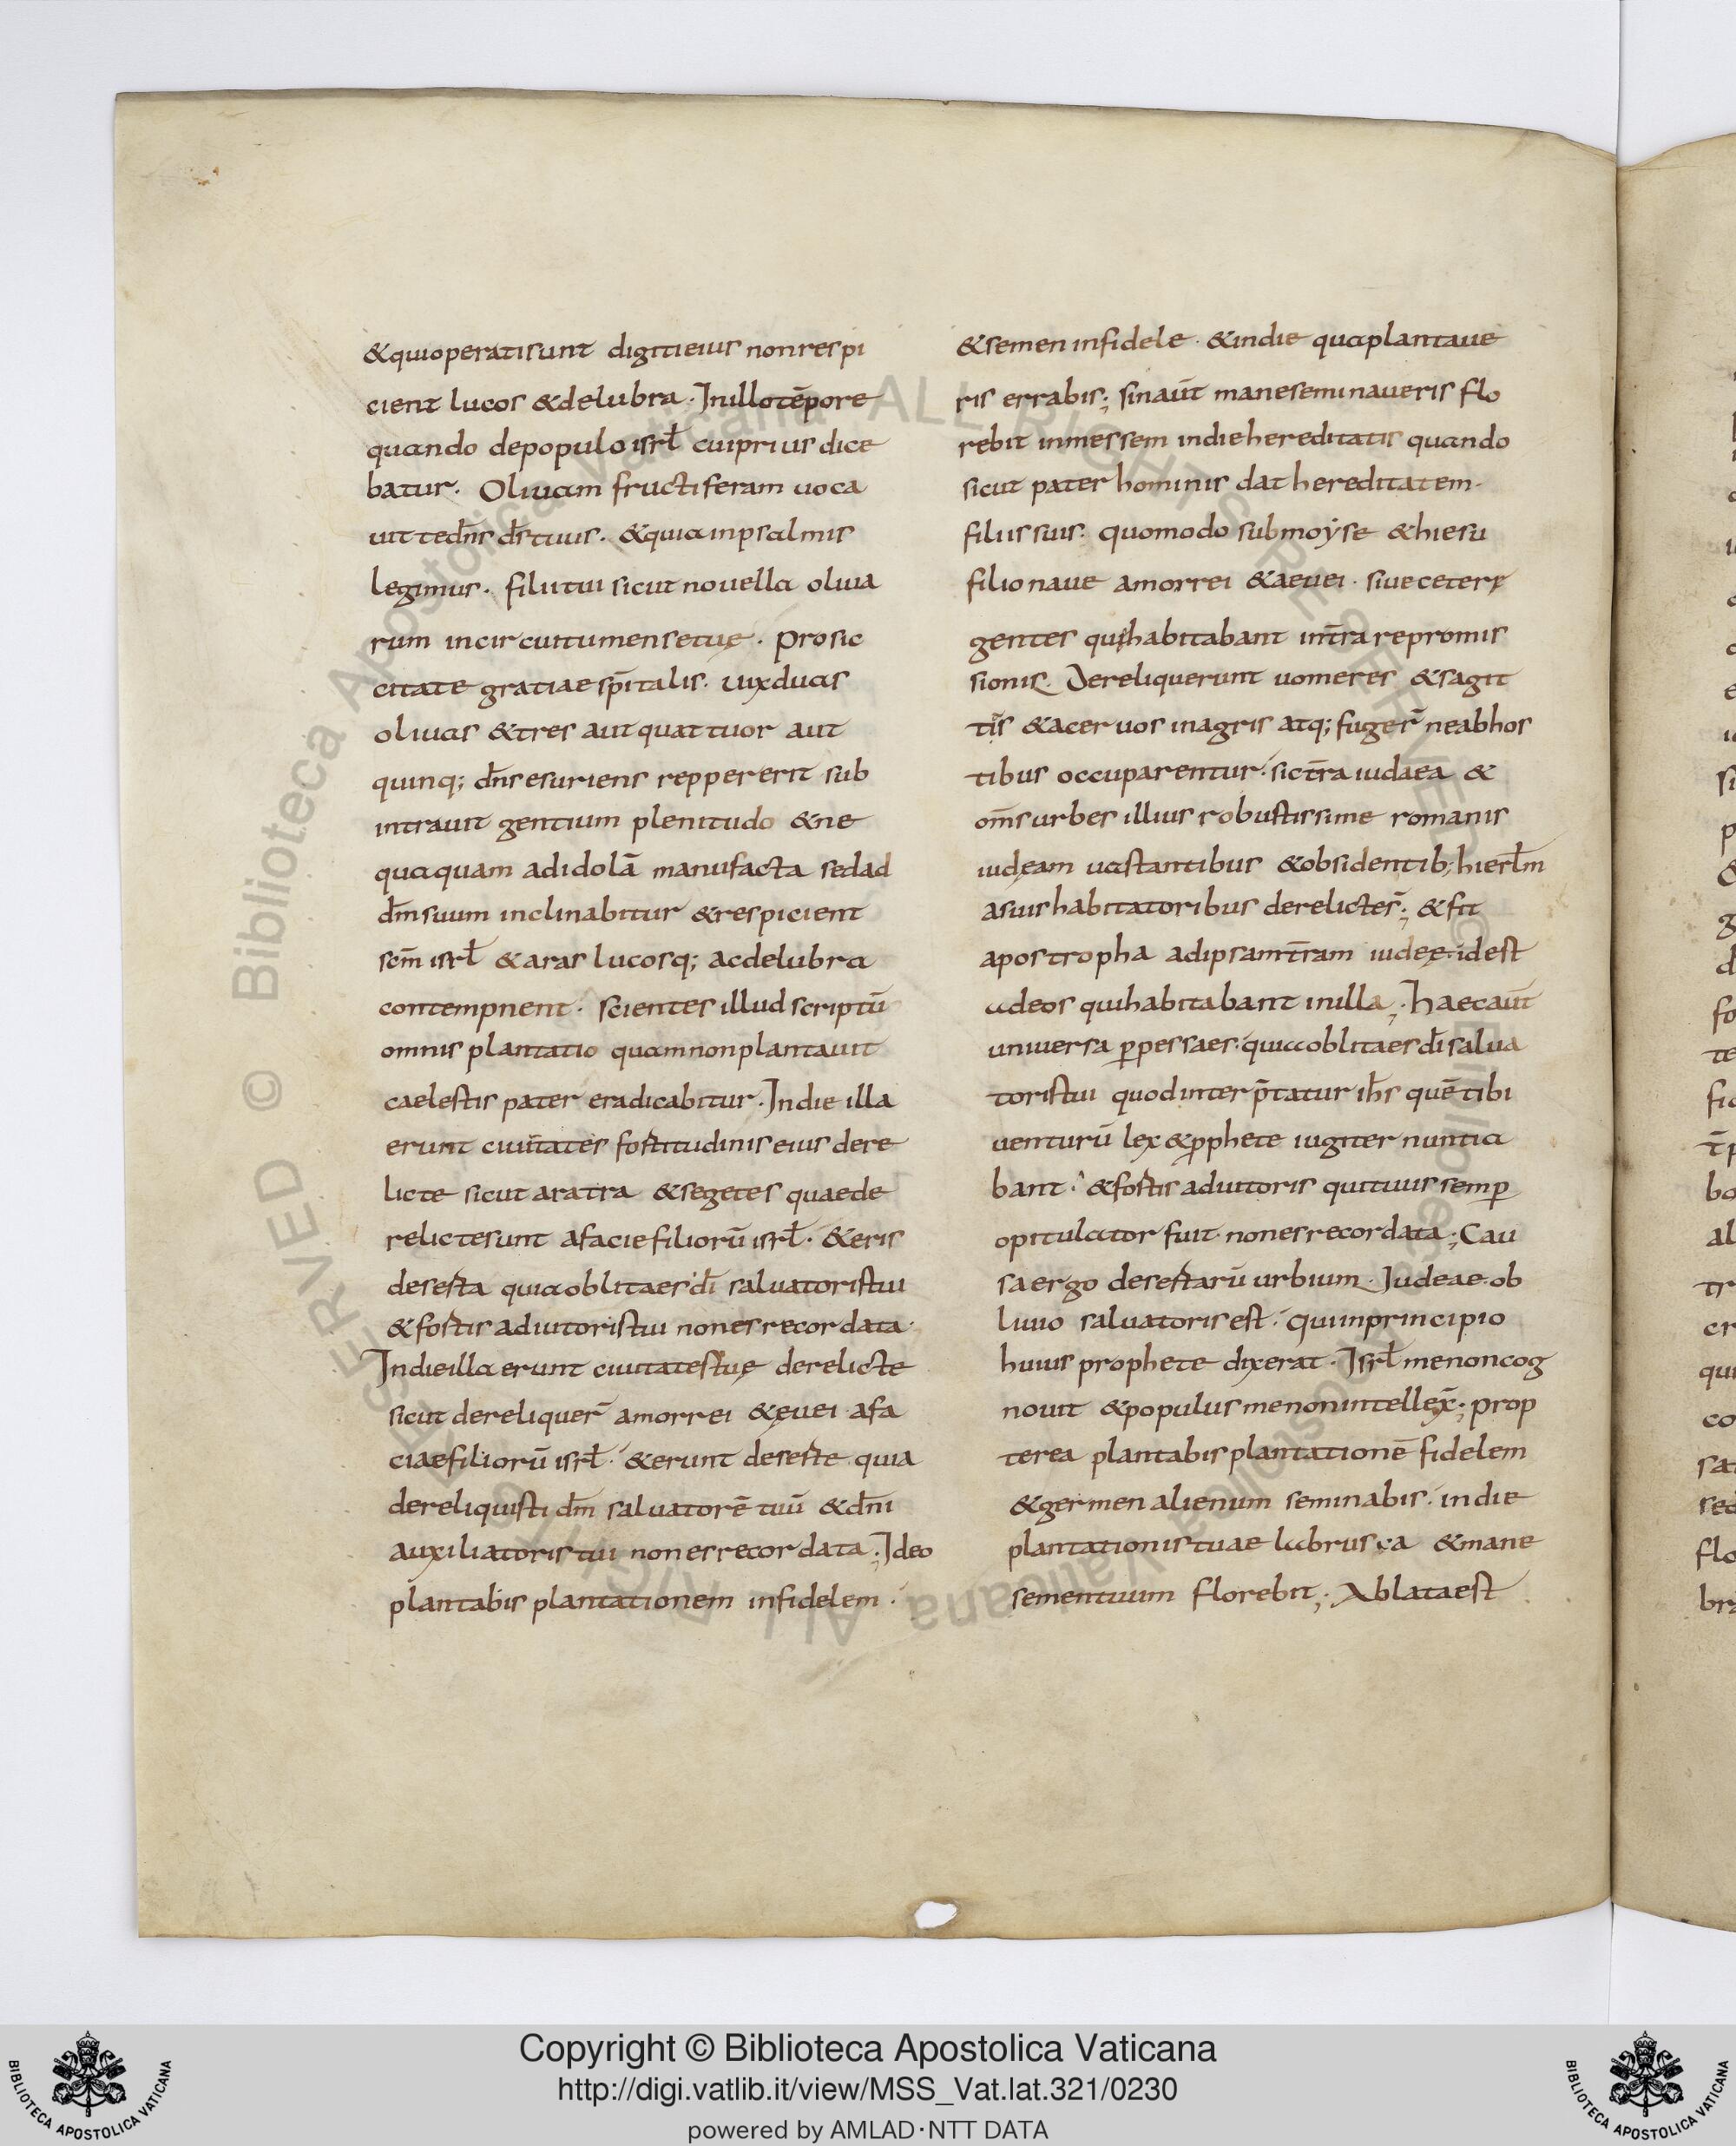 &quioperatisunt digitieius nonrespi
cient lucos &delubra. Inillotēpore
quando depopulo isrł cuiprius dice
batur. Oliuam fructiferam uoca
uit tedn̄s ds̄tuus. &quiainpsalmis
legimus. filiitui sicut nouella oliua
rum incircuitumensetuę. prosic
citate gratiaesp̄italis. uixduas
oliuas &tres aut quattuor aut
quinq; dn̄sesuriens reppererit sub
intrauit gentium plenitudo &ne
quaquam adidolā manufacta sedad
dm̄suum inclinabitur &respicient
scm̄ isrł &aras lucosq; acdelubra
contempnent. scientes illud scriptū
omnis plantatio quamnonplantauit
caelestis pater eradicabitur. Indie illa
erunt ciuitates fortitudinis eius dere
licte sicut aratra &segetes quaede
relictesunt afaciefiliorū isrł. &eris
deserta quiaoblitaes dī saluatoristui
&fortis adiutoristui nonesrecordata.
Indieilla erunt ciuitatestuę derelicte
sicut dereliquer̄ amorrei &ęuei afa
ciaefiliorū isrł. &erunt deserte quia
dereliquisti dm̄ saluatorē tuū &dn̄i
auxiliatoristui nonesrecordata; Ideo
plantabis plantationem infidelem.
&semen infidele. &indie quaplantaue
ris errabis; sinaūt maneseminaueris flo
rebit inmessem indiehereditatis quando
sicut pater hominis dat hereditatem.
filiissuis. quomodo submoyse &hiesu
filionaue amorrei &aeuei. siueceterę
gentes quihabitabant int̄rarepromis
sionis. Dereliquerunt uomeres &sagit
tis &aceruos inagris atq; fuger̄ neabhos
tibus occuparentur. sict̄ra iudaea &
om̄surbes illius robustissime romanis
iudęam uastantibus &obsidentib; hierłm
asuishabitatoribus derelictes̄; &fit
apostropha adipsamt̄ram iudeę. idest
adeos quihabitabant inilla; haecaūt
uniuersa ꝑpessaes. quiaoblitaesdī salua
toristui quodinterp̄tatur ihs̄ quē tibi
uenturū lex &ꝓphete iugiter nuntia
bant. &fortis adiutoris quituus semꝑ
opitulator fuit. nonesrecordata; Cau
saergo desertarū urbium. Iudeae. ob
liuio saluatorisest. quiinprincipio
huius prophete dixerat. Isrł menoncog
nouit &populus menonintellex̄; prop
terea plantabis plantationē fidelem
&germen alienum seminabis. indie
plantationistuae labrusca &mane
sementuum florebit; Ablataest
Copyright © Biblioteca Apostolica Vaticana
http://digi.vatlib.it/view/MSS_Vat.lat.321/0230
powered by AMLAD·NTT DATA